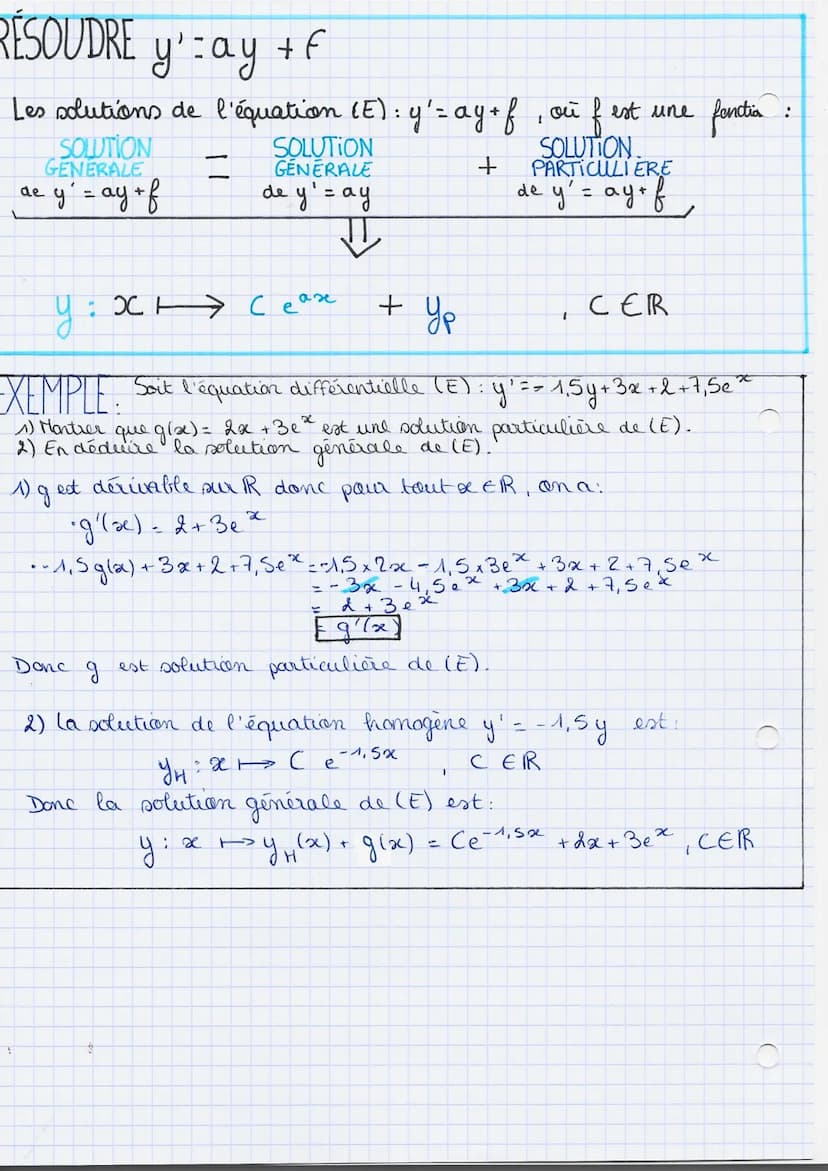 RÉSOUDRE y' = ay + f
Les solutions de l'équation (E) : y' = ay + f , où f est une fonctio :
SOLUTION GÉNÉRALE de y' = ay + f = SOLUTION GÉNÉRALE de y' = ay + SOLUTION PARTICULIÈRE de y' = ay + f
⇓
y : x ⟼ C e^{ax} + y_p , C ∈ ℝ
EXEMPLE : Soit l'équation différentielle (E) : y' = - 1,5y + 3x + 2 + 7,5e^x
1) Montrer que g(x) = 2x + 3e^x est une solution particulière de (E).
2) En déduire la solution générale de (E).
1) g est dérivable sur ℝ donc pour tout x ∈ ℝ, on a :
· g'(x) = 2 + 3e^x
· -1,5 g(x) + 3x + 2 + 7,5e^x = -1,5 × 2x - 1,5 × 3e^x + 3x + 2 + 7,5e^x
= - 3x - 4,5e^x + 3x + 2 + 7,5e^x
= 2 + 3e^x
= g'(x)
Donc g est solution particulière de (E).
2) La solution de l'équation homogène y' = -1,5y est :
y_H : x ⟼ C e^{-1,5x} , C ∈ ℝ
Donc la solution générale de (E) est :
y : x ⟼ y_H(x) + g(x) = Ce^{-1,5x} + 2x + 3e^x , C ∈ ℝ